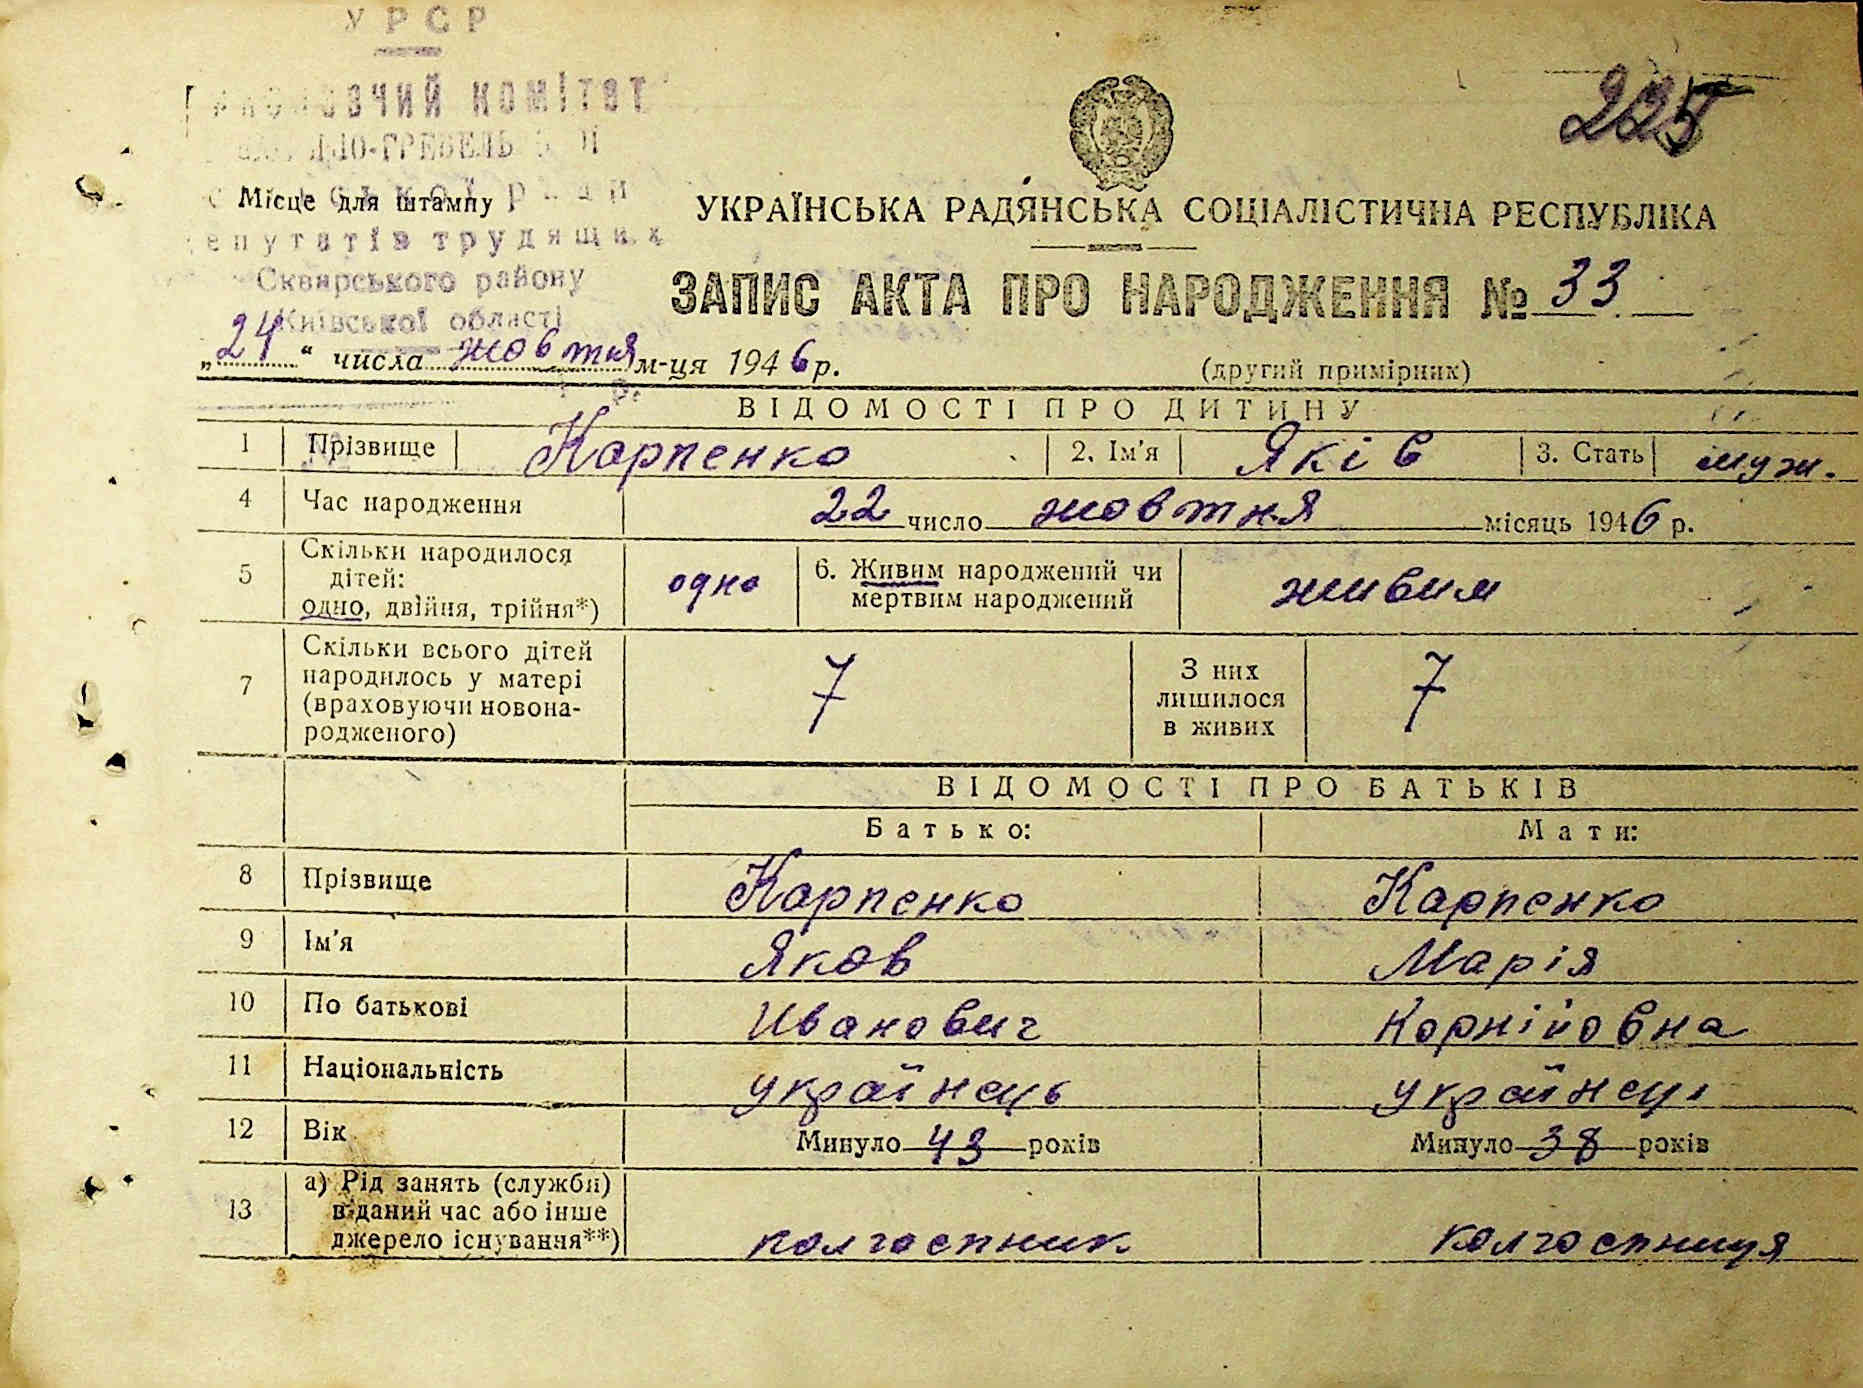 УРСР
комітет
225
Місце для штампу
УКРАЇНСЬКА РАДЯНСЬКА СОЦІАЛІСТИЧНА РЕСПУБЛІКА
депутатів трудящих
Сквирського району
ЗАПИС АКТА ПРО НАРОДЖЕННЯ № 33
Київської області
„24“ числа жовтня м-ця 1946 р.
(другий примірник)
ВІДОМОСТІ ПРО ДИТИНУ
1 Прізвище Карпенко 2. Ім'я Яків 3. Стать муж.
4 Час народження 22 число жовтня місяць 1946 р.
5 Скільки народилося
дітей:
одно, двійня, трійня*)
одно
6. Живим народжений чи
мертвим народжений
живим
7 Скільки всього дітей
народилось у матері
(враховуючи новона-
родженого)
7
З них
лишилося
в живих
7
ВІДОМОСТІ ПРО БАТЬКІВ
Батько: Мати:
8 Прізвище Карпенко Карпенко
9 Ім'я Яков Марія
10 По батькові Иванович Корнійовна
11 Національність українець українці
12 Вік Минуло 43 років Минуло 38 років
13 а) Рід занять (служби)
в даний час або інше
джерело існування**)
колгоспник колгоспниця